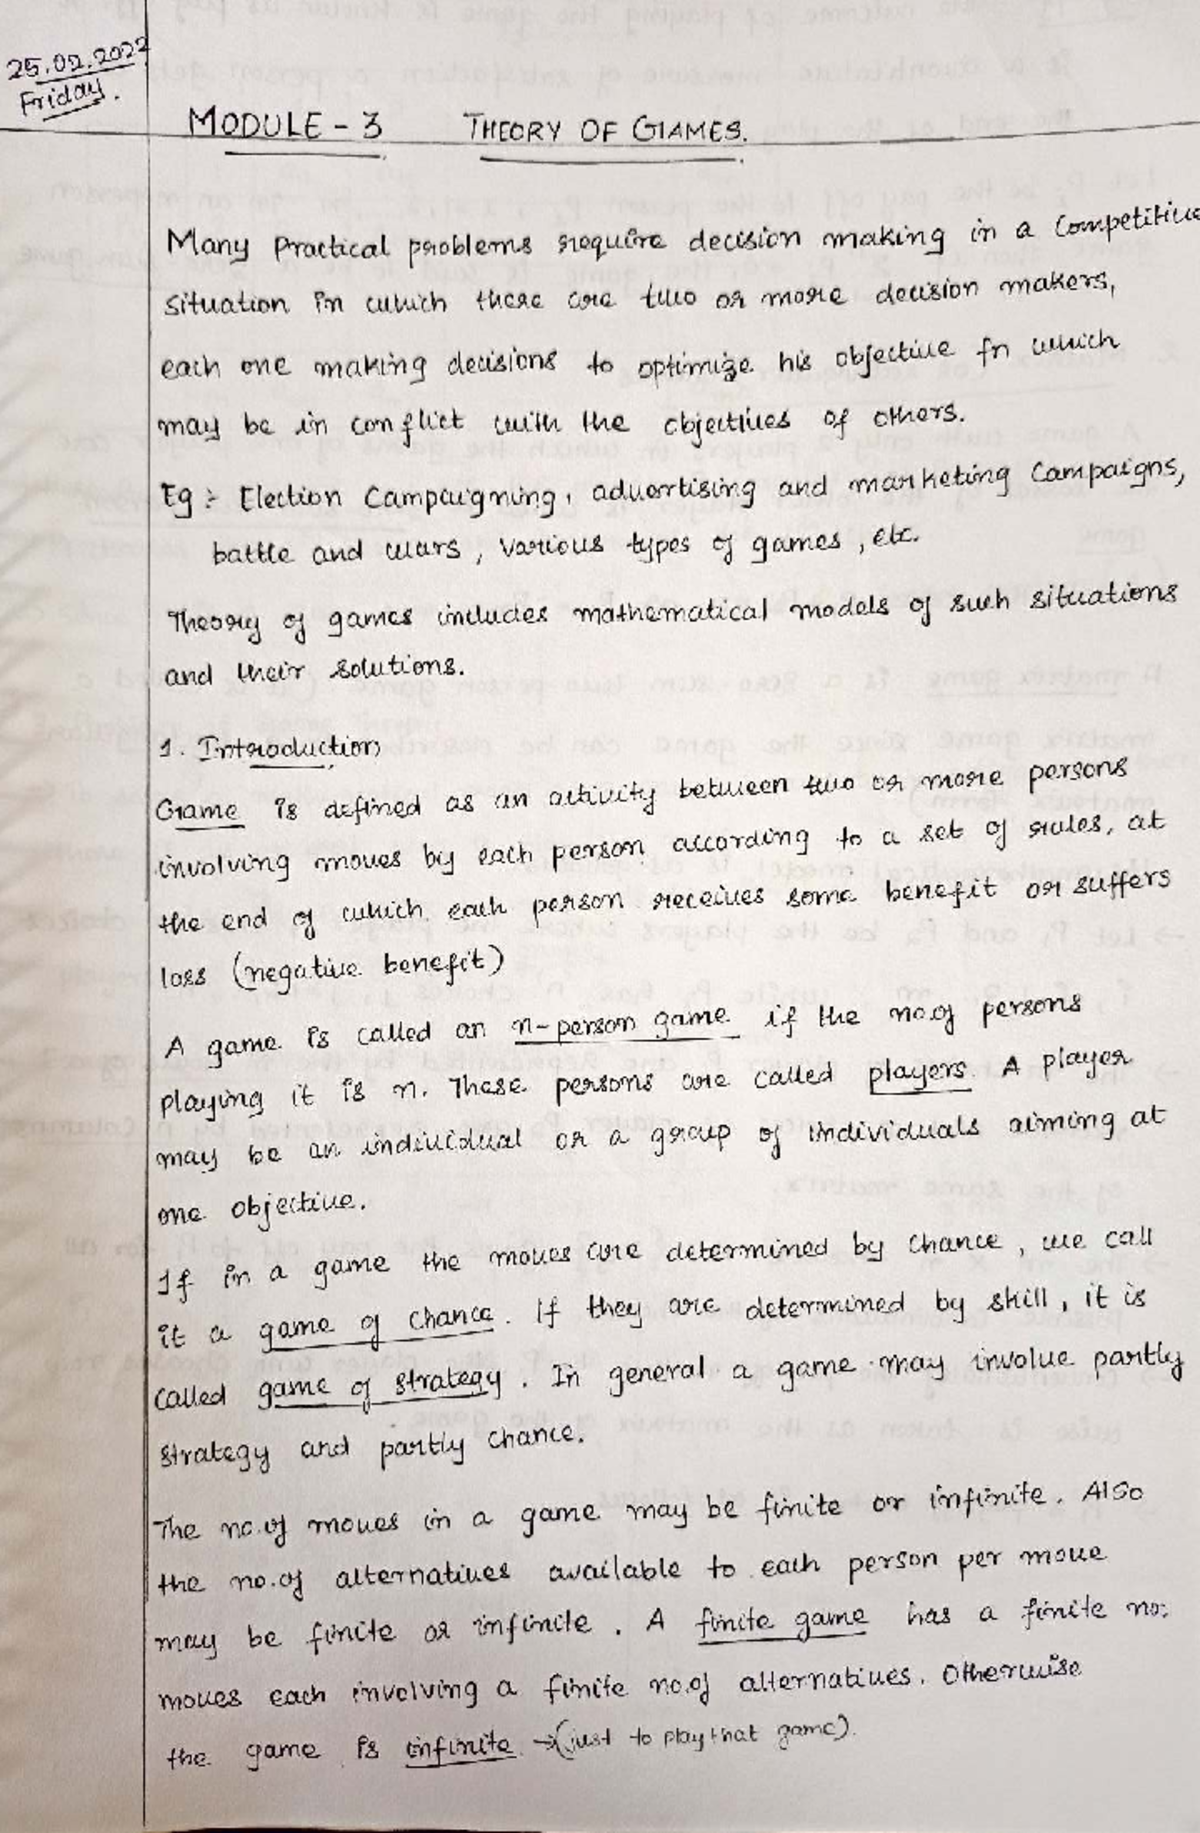 25.02.2022
Friday.
MODULE - 3 THEORY OF GAMES.
Many Practical problems require decision making in a Competitive
situation in which there are two or more decision makers,
each one making decisions to optimize his objective fn which
may be in conflict with the objectives of others.
Eg :- Election Campaigning, advertising and marketing Campaigns,
battle and wars, various types of games, etc.
Theory of games includes mathematical models of such situations
and their solutions.
1. Introduction
Game is defined as an activity between two or more persons
involving moves by each person according to a set of rules, at
the end of which each person receives some benefit or suffers
loss (negative benefit)
A game is called an n-person game if the no.of persons
playing it is n. These persons are called players. A player
may be an individual or a group of individuals aiming at
one objective.
If in a game the moves are determined by chance, we call
it a game of chance. If they are determined by skill, it is
called game of strategy. In general a game may involve partly
strategy and partly chance.
The no.of moves in a game may be finite or infinite. Also
the no.of alternatives available to each person per move
may be finite or infinite. A finite game has a finite no:
moves each involving a finite no.of alternatives. Otherwise
the game is infinite →(just to play that game).